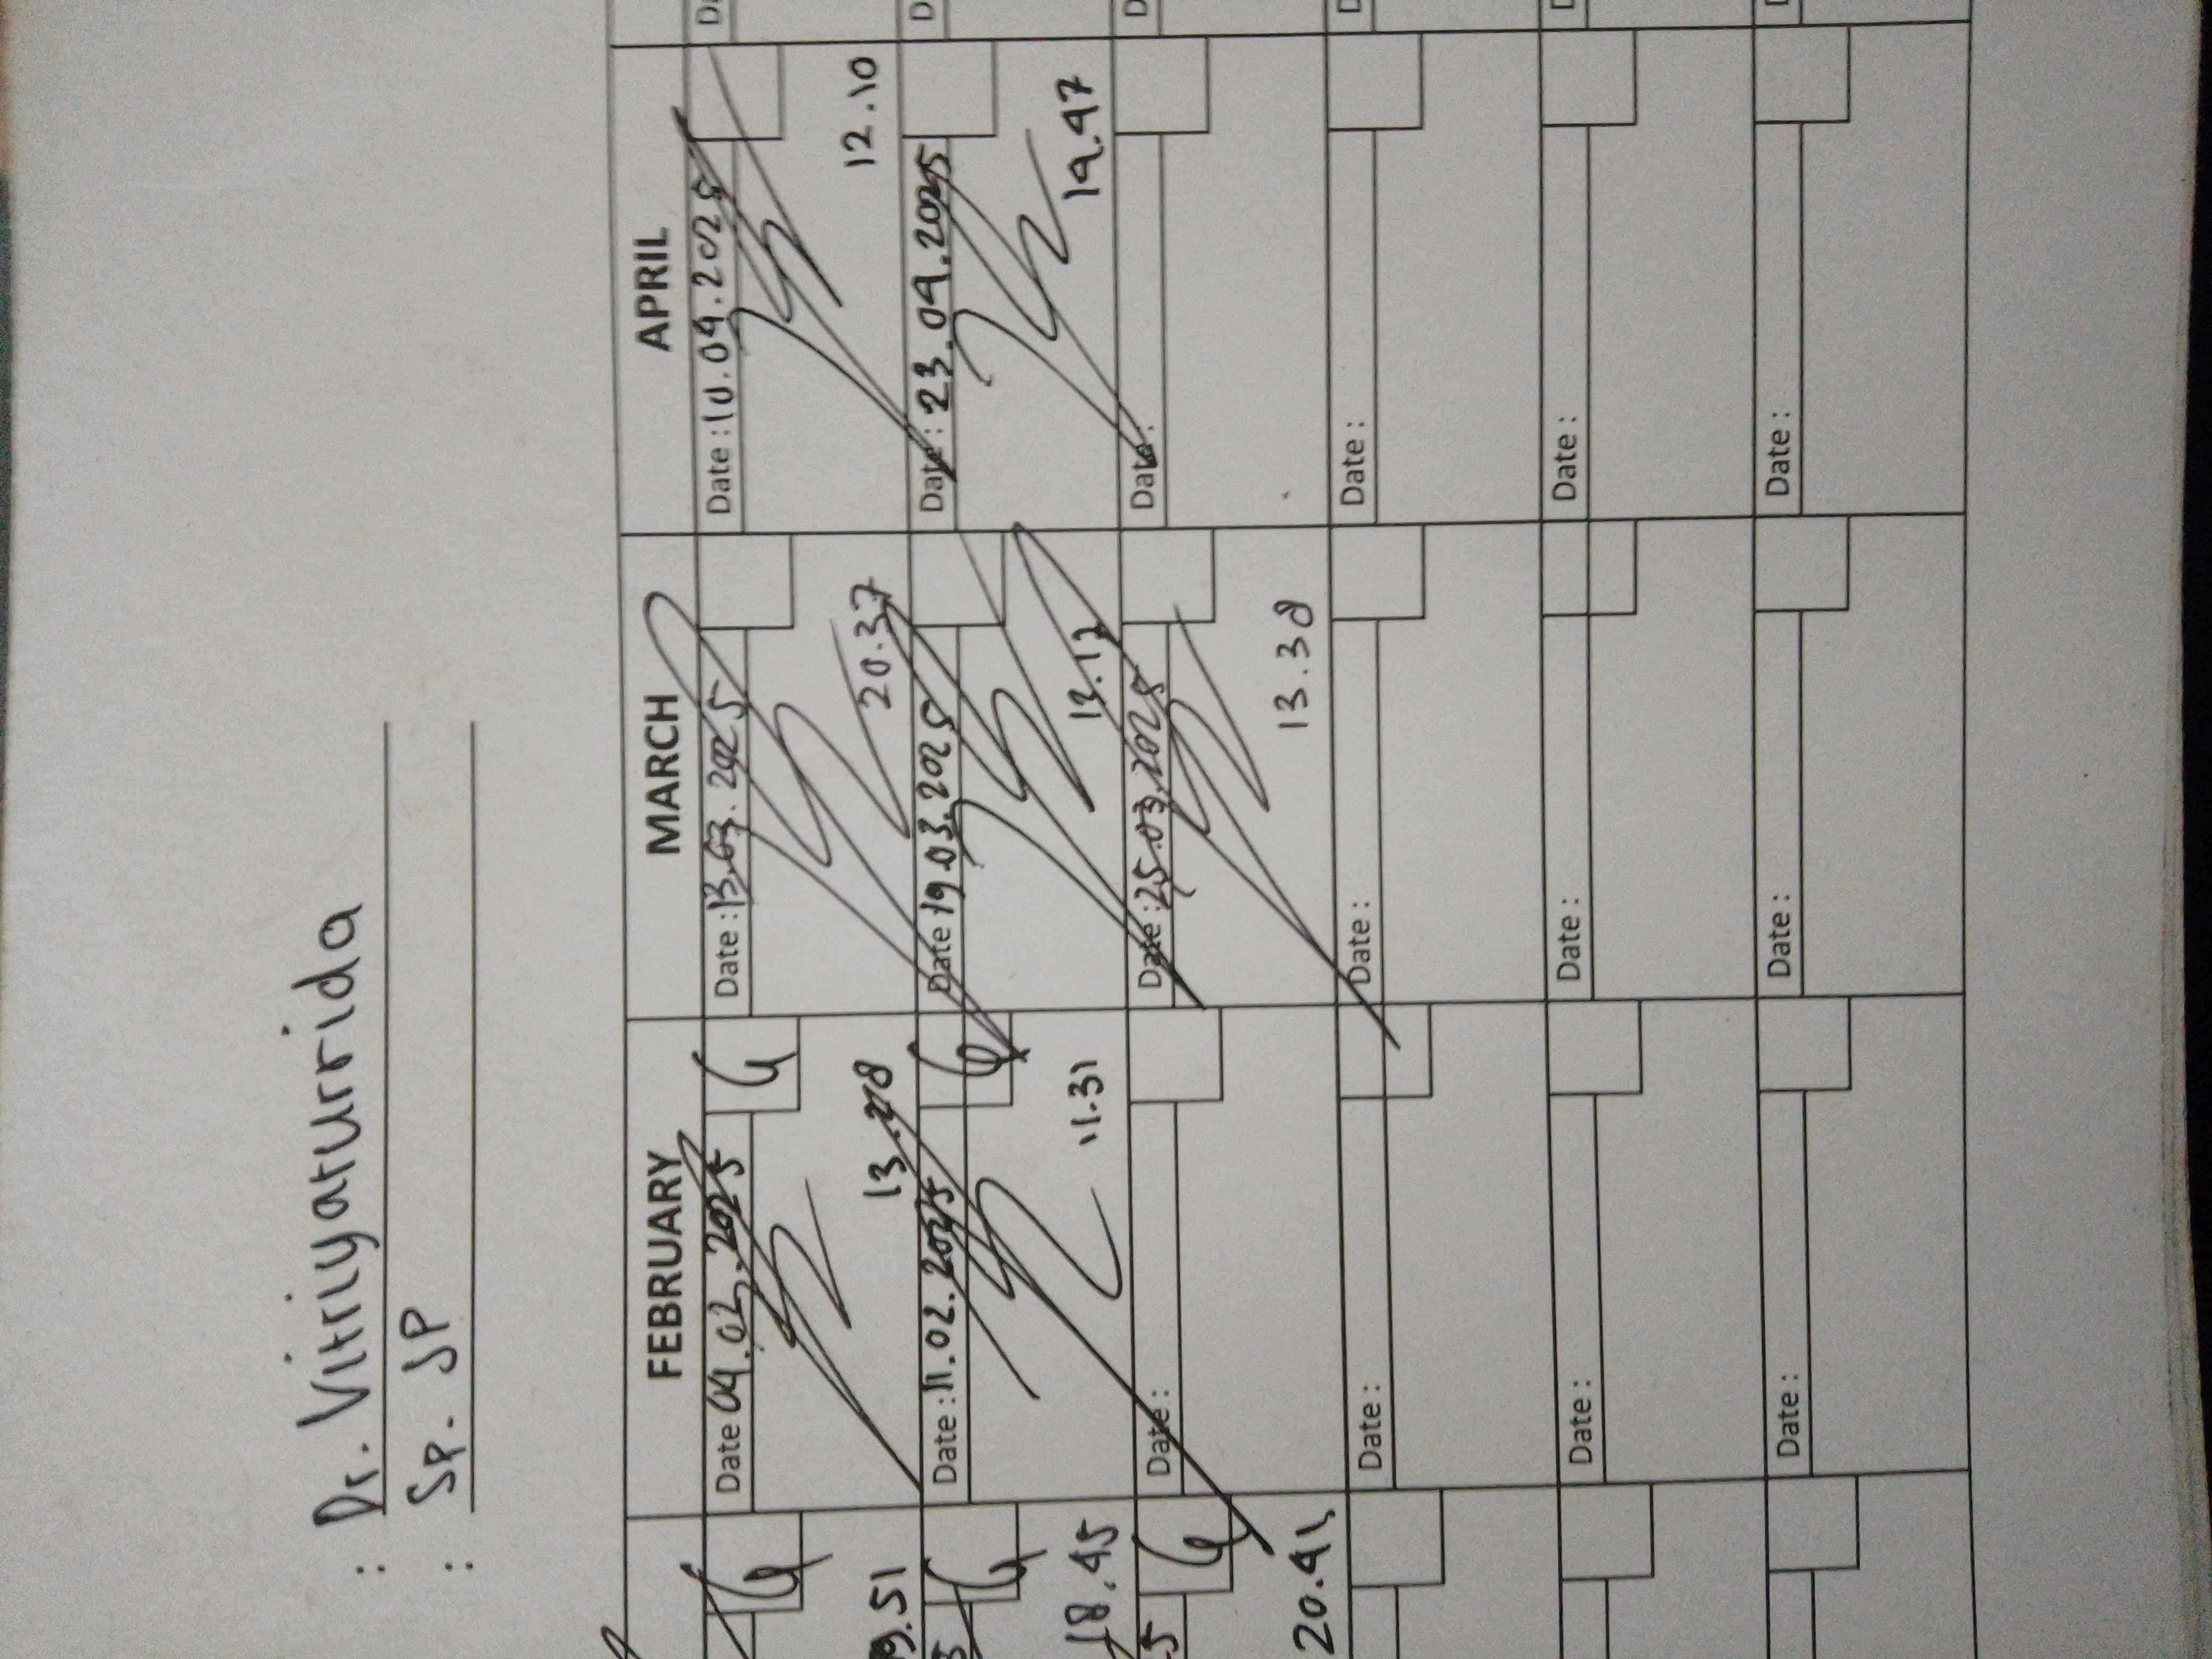 : Dr. Vitriyaturrida
: Sp. JP
FEBRUARY MARCH APRIL
Date 04.02.2025 Date : 13.03.2025 Date : 10.04.2025
19.51 13.28 20.37 12.10
Date : 11.02.2025 Date 19.03.2025 Date : 23.04.2025
18.45 11.31 13.17 19.47
Date : Date : 25.03.2025 Date :
20.41 13.38
Date : Date : Date :
Date : Date : Date :
Date : Date : Date :